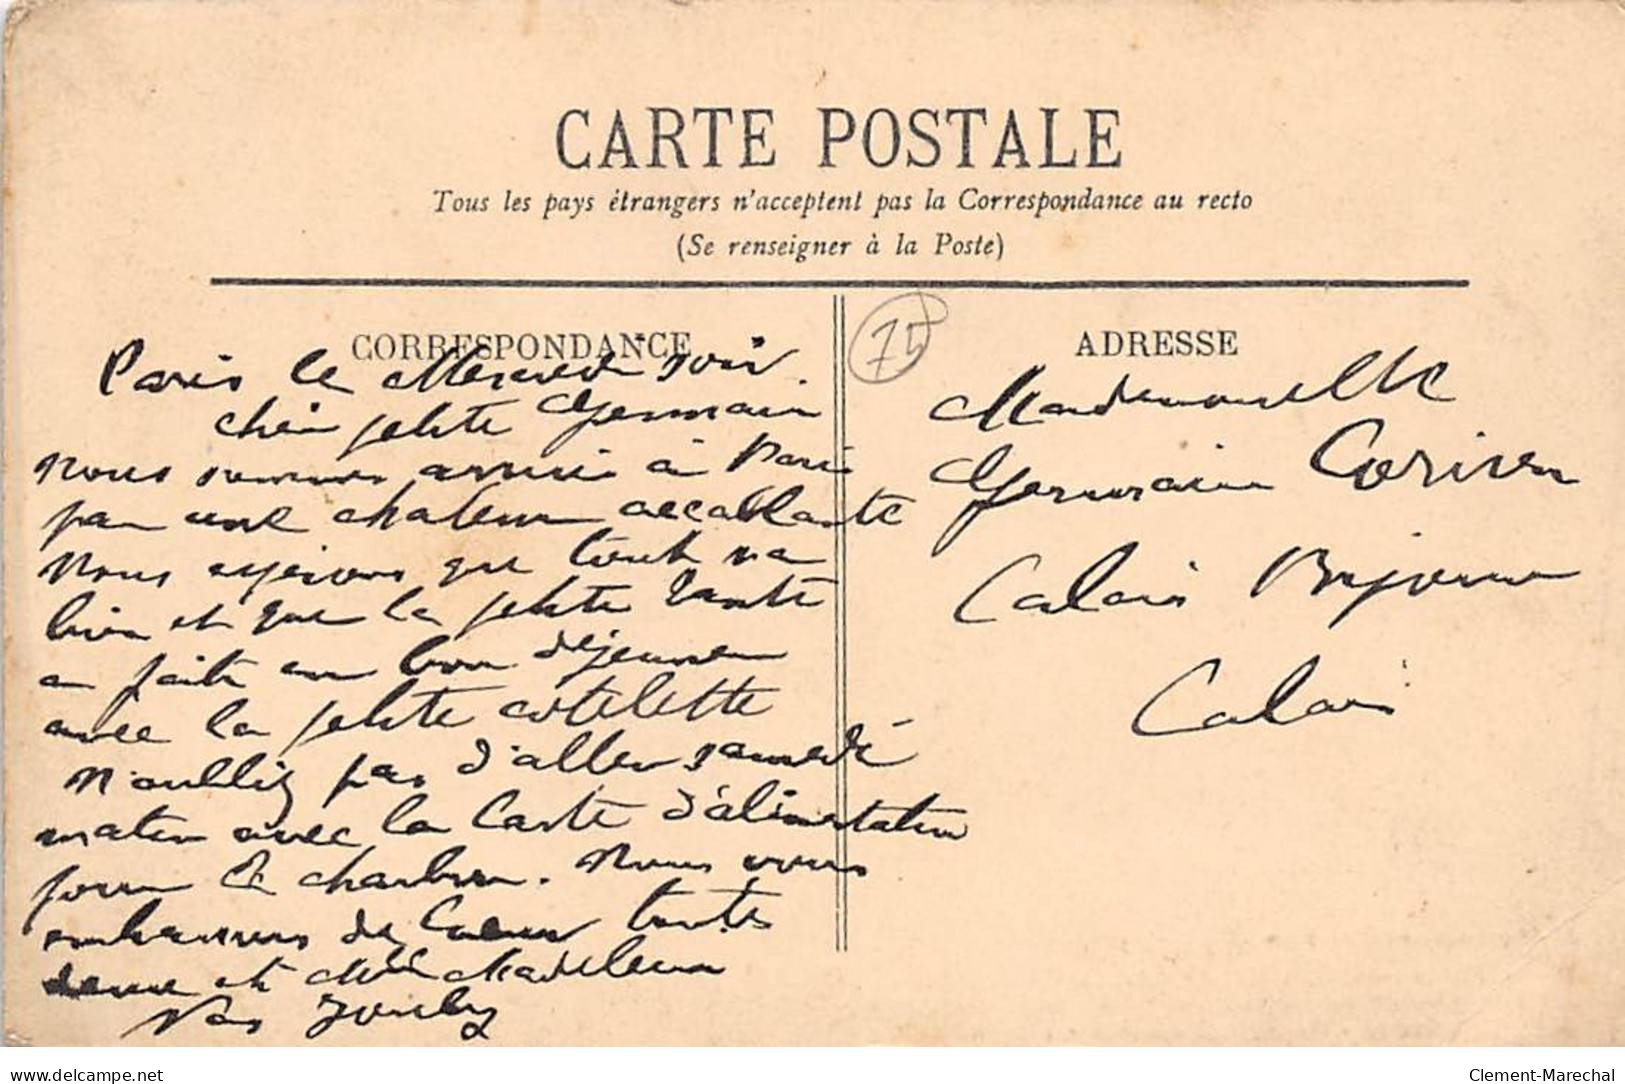 CARTE POSTALE
Tous les pays étrangers n'acceptent pas la Correspondance au recto
(Se renseigner à la Poste)
CORRESPONDANCE
75
ADRESSE
Paris le Mercredi soir.
petite Germain
nous sommes arrivé à Paris
par une chaleur accablante
Nous esperons que tout va
bien et que la petite
a fait un bon déjeuner
avec la petite cotelette
N'oubliez pas d'aller samedi
matin avec la Carte d'alimentation
pour le charbon. Nous vous
embrassons de Coeur toute
deux et Mlle Madeleine
Mademoiselle
Germain
Calais
Calais
www.delcampe.net
Clement-Marechal